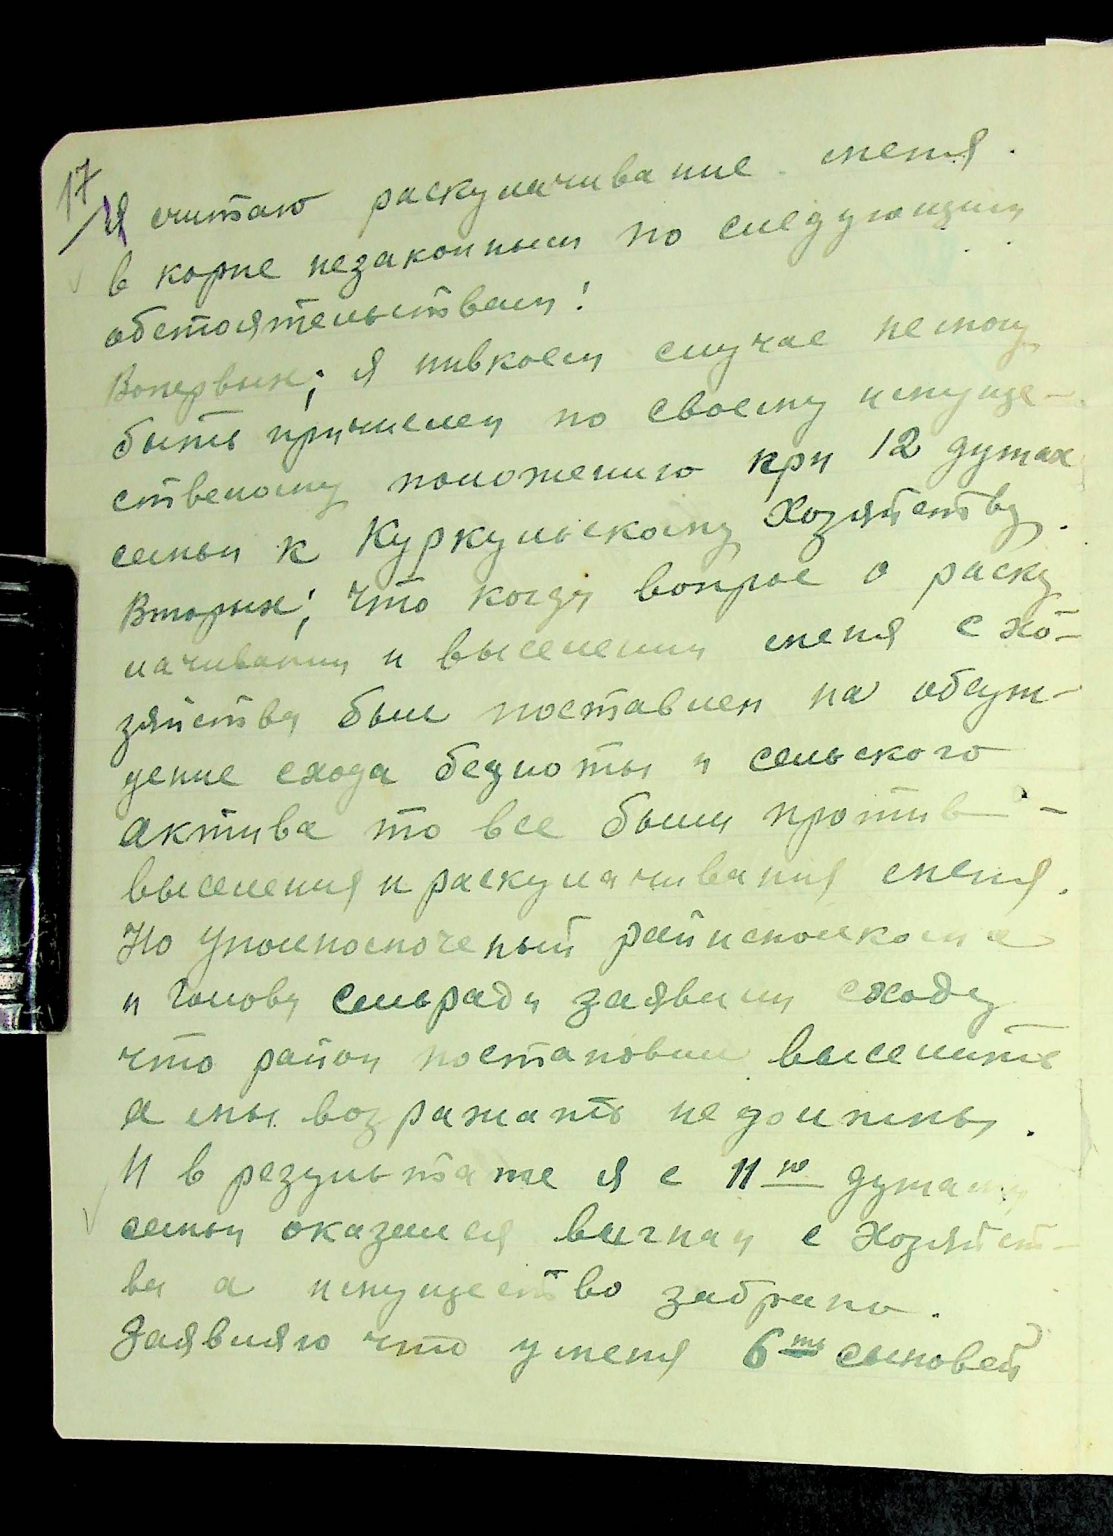 17
Я считаю раскулачивание меня.
в корне незаконным по следующим
обстоятельствам!
Вопервых; я нивкоем случае немогу
быть причислен по своему имуще-
ственому положению при 12 душах
семьи к Куркульскому Хозяйству.
Вторых; что когда вопрос о раску
лачивании и выселении меня с хо-
зяйства был поставлен на обсуж-
дение схода бедноты и сельского
актива то все были против -
выселения и раскулачивания меня.
Но Уполномоченый райисполкома
и Голова сельради заявили сходу
что район постановил выселить
а мы возражать недолжны.
И в результате я с 11ю душами
семьи оказался выгнан с Хозяйст-
ва а имущество забрано.
Заявляю что уменя 6ть сыновей